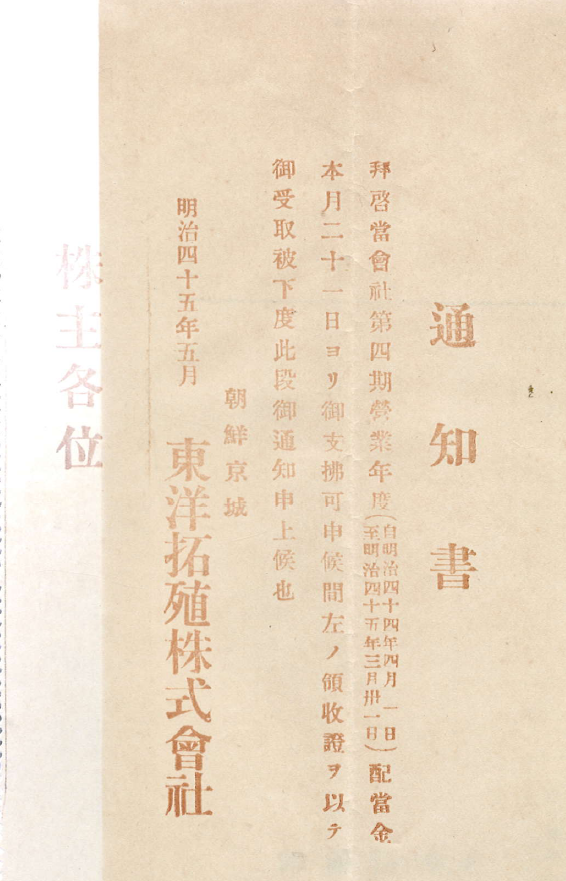 通知書
拜啓當會社第四期營業年度(自明治四十四年四月一日至明治四十五年三月卅一日)配當金
本月二十一日ヨリ御支拂可申候間左ノ領收證ヲ以テ
御受取被下度此段御通知申上候也
朝鮮京城
明治四十五年五月
東洋拓殖株式會社
株主各位